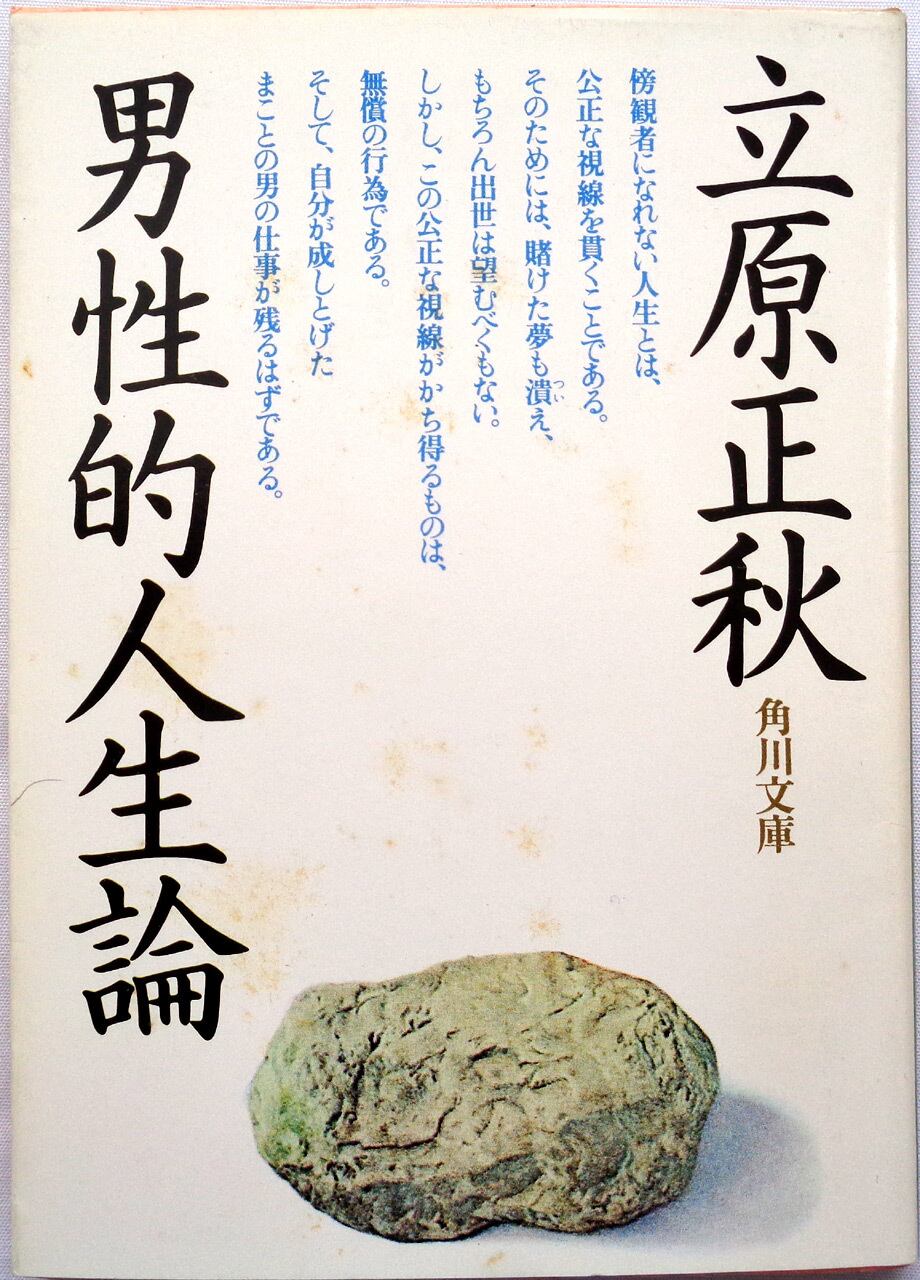 立原正秋
角川文庫
傍観者になれない人生とは、
公正な視線を貫くことである。
そのためには、賭けた夢も潰え、
つい
もちろん出世は望むべくもない。
しかし、この公正な視線がかち得るものは、
無償の行為である。
そして、自分が成しとげた
まことの男の仕事が残るはずである。
男性的人生論